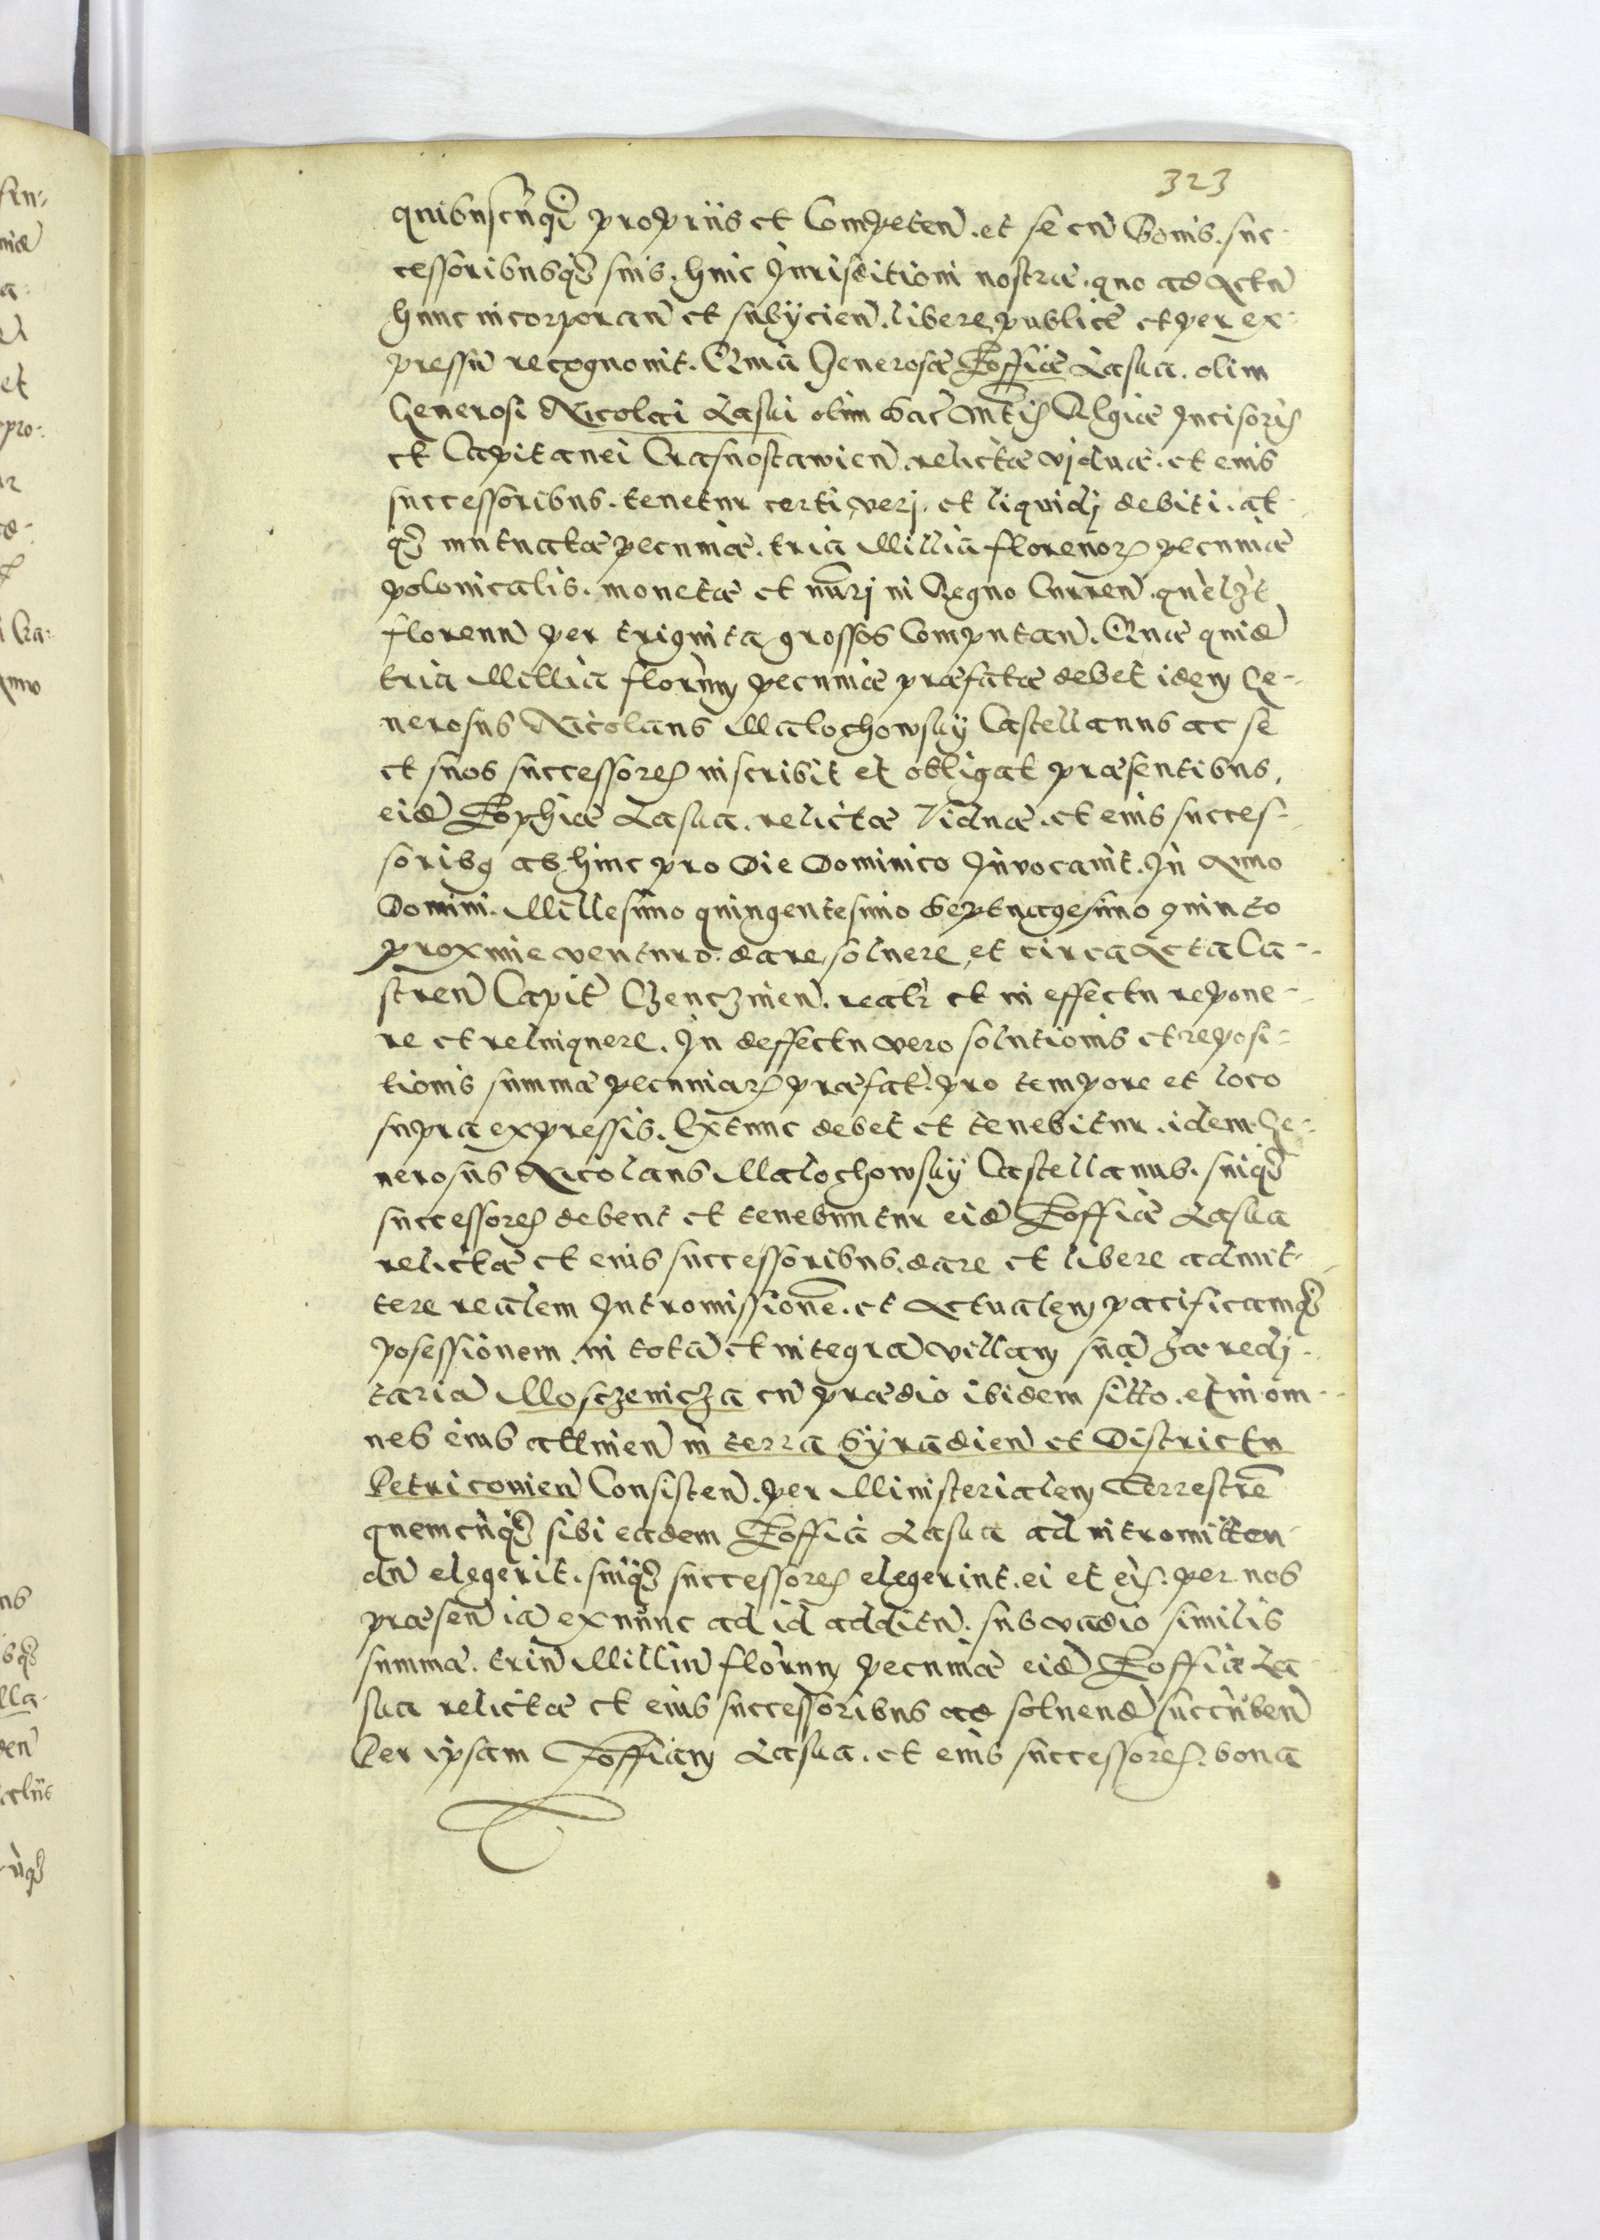 323
quibuscunq̃ propriis et Competeñ. et se cũ Bonis. suc-
cessoribusq̃ suis. huic Jurisditioni nostræ. quo ad Actũ
hunc incorporañ et subÿcieñ. libere publice et per ex-
pressũ recognouit. Quia Generosæ Zoffiæ Laska. olim
Generosi Nicolai Laski olim Sac̃ Mtis Regiæ Incisoris
et Capitanei Crasnostawieñ. relictæ vjduæ. et eius
successoribus. tenetur certi, verj. et liquidj debiti. at-
q̃ mutuatæ pecuniæ. tria Millia florenorꝝ pecuniæ
polonicalis. monetæ et nũrj in Regno Currẽn. quel̃zt
florenũ per triginta grossos Computañ. Quæ quid̃
tria Millia florũm pecuniæ præfatæ debet idem Ge-
nerosus Nicolaus Malochowskÿ Castellanus ac se
et suos successores inscribit et obligat præsentibus,
eid̃ Zophiæ Laska. relictæ Viduæ. et eius succes-
soribꝯ ab hinc pro Die Dominico Inuocauit. In Anno
Domini. Millesimo quingentesimo Septuagesimo quinto
proxime venturo. dare, soluere, et circa Acta Ca-
streñ Capit̃ Chenczineñ. realr̃ et in effectu repone-
re et relinquere. In deffectu vero solutionis et reposi-
tionis summæ pecuniarꝝ præfat̃. pro tempore et loco
supra expressis. Extunc debet et tenebitur. idem Ge-
nerosus Nicolaus Malochowskÿ Castellanus. suiq̃
successores debent et tenebuntur eid̃ Zoffiæ Laska
relictæ et eius successoribus. dare et libere admit-
tere realem Intromissionẽ. et Actualem pacificamq̃
posessionem. in totã et integrã villam suã hæredj-
tariã Mosczenicza cũ prædio ibidem sitto. et in om-
nes eius attineñ in terra Sÿradieñ et Districtu
Petricouieñ Consisteñ. per Ministerialem Terrestrẽ
quemcũq̃ sibi eadem Zoffia Laska ad intromitten-
dũ elegerit. suiq̃ successores elegerint. ei et eis. per nos
præseñ iã exnunc ad id additũ. sub vadio similis
summæ. triũ Milliũ florũm pecuniæ eid̃ Zoffiæ La-
ska relictæ et eius successoribus ad soluend̃ succũbeñ
Per ipsam Zoffiam Laska. et eius successores. bona